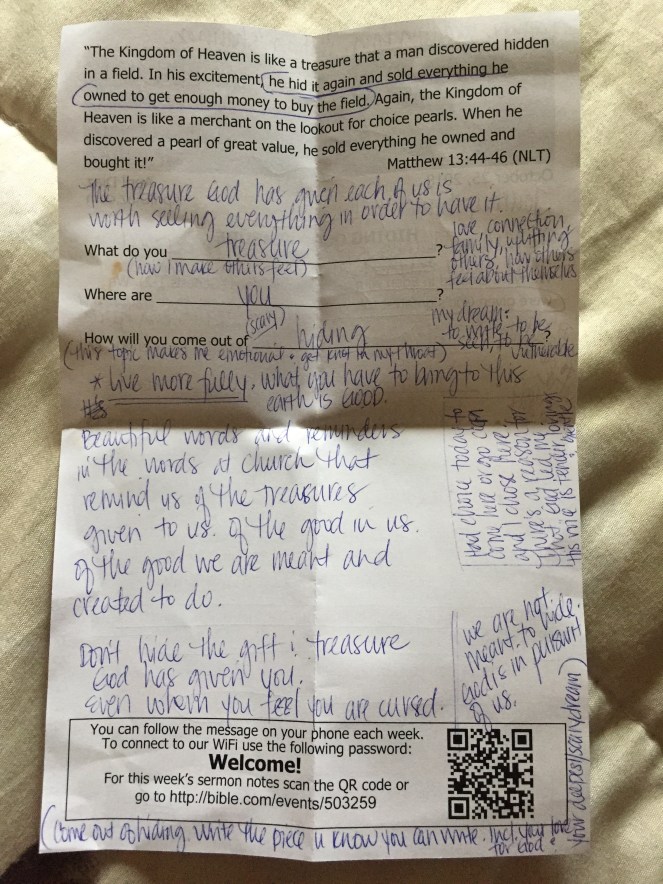 "The Kingdom of Heaven is like a treasure that a man discovered hidden
in a field. In his excitement, he hid it again and sold everything he
owned to get enough money to buy the field. Again, the Kingdom of
Heaven is like a merchant on the lookout for choice pearls. When he
discovered a pearl of great value, he sold everything he owned and
bought it!"
Matthew 13:44-46 (NLT)
The treasure God has given each of us is
worth selling everything in order to have it.
What do you treasure ?
(how I make others feel)
love, connection,
family, uplifting
others, how others
feel about themselves
Where are you ?
(scary)
How will you come out of hiding
my dream:
to write - to be
seen, to be
vulnerable
(this topic makes me emotional & get knot in my throat)
* Live more fully. What you have to bring to this
earth is GOOD.
Beautiful words and reminders
in the words at church that
remind us of the treasures
given to us. Of the good in us.
Of the good we are meant and
created to do.
Had choice today to
come here or go
and I chose here.
There's a reason for
that. God leading
His voice is tender
Don't hide the gift & treasure
God has given you.
Even when you feel you are cursed.
we are not
meant to hide.
God is in pursuit
of us.
You can follow the message on your phone each week.
To connect to our WiFi use the following password:
Welcome!
For this week's sermon notes scan the QR code or
go to http://bible.com/events/503259
(Come out of hiding. Write the piece u know you can write. Incl. your love
for God &
your deepest/scary dream)